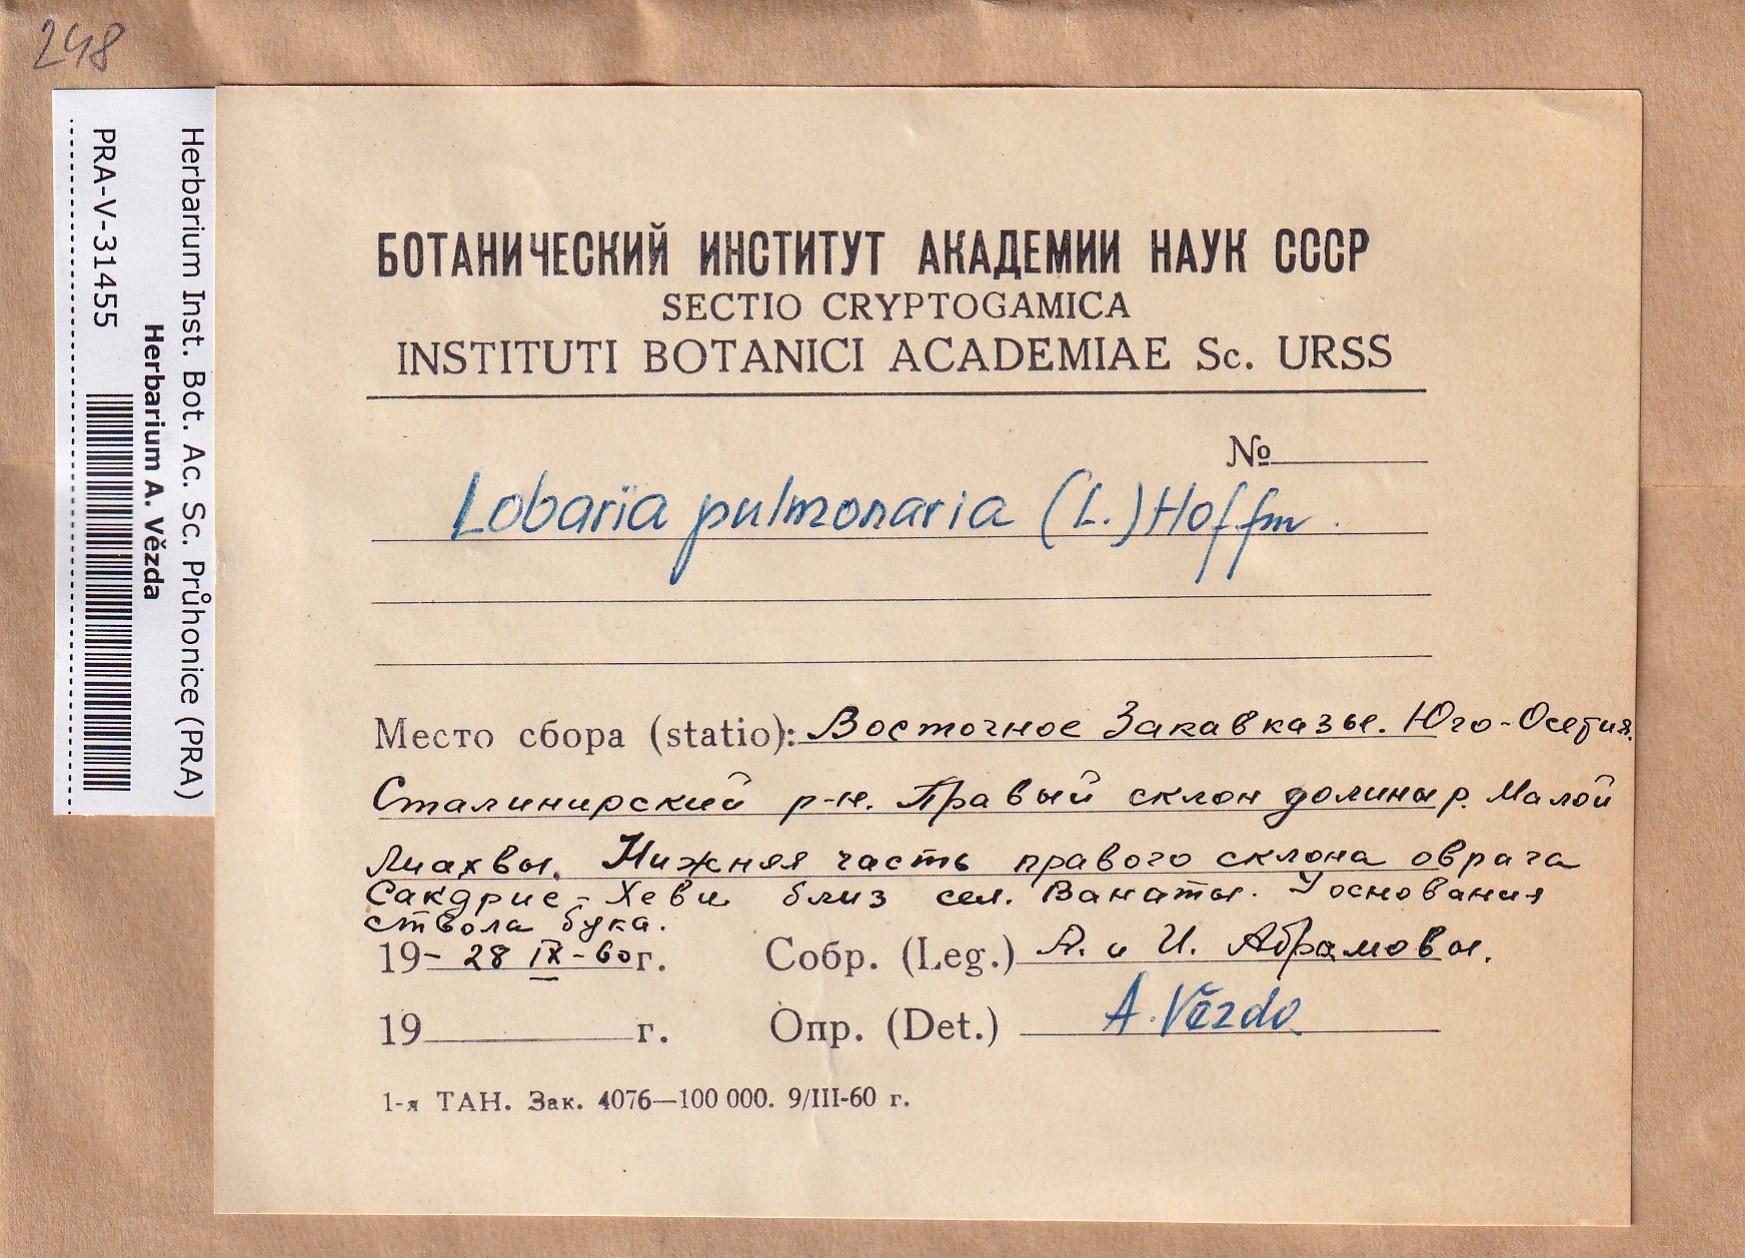 248
Herbarium Inst. Bot. Ac. Sc. Průhonice (PRA)
Herbarium A. Vězda
PRA-V-31455
БОТАНИЧЕСКИЙ ИНСТИТУТ АКАДЕМИИ НАУК СССР
SECTIO CRYPTOGAMICA
INSTITUTI BOTANICI ACADEMIAE Sc. URSS
№
Lobaria pulmonaria (L.) Hoffm.
Место сбора (statio): Восточное Закавказье. Юго-Осетия.
Сталинирский р-н. Правый склон долины р. Малой
Лиахвы. Нижняя часть правого склона оврага
Сакдрис-Хеви близ сел. Ванаты. У основания
ствола бука.
19- 28 IX-60 г. Собр. (Leg.) А. и И. Абрамовы.
19 г. Опр. (Det.) A. Vězda
1-я ТАН. Зак. 4076—100 000. 9/III-60 г.